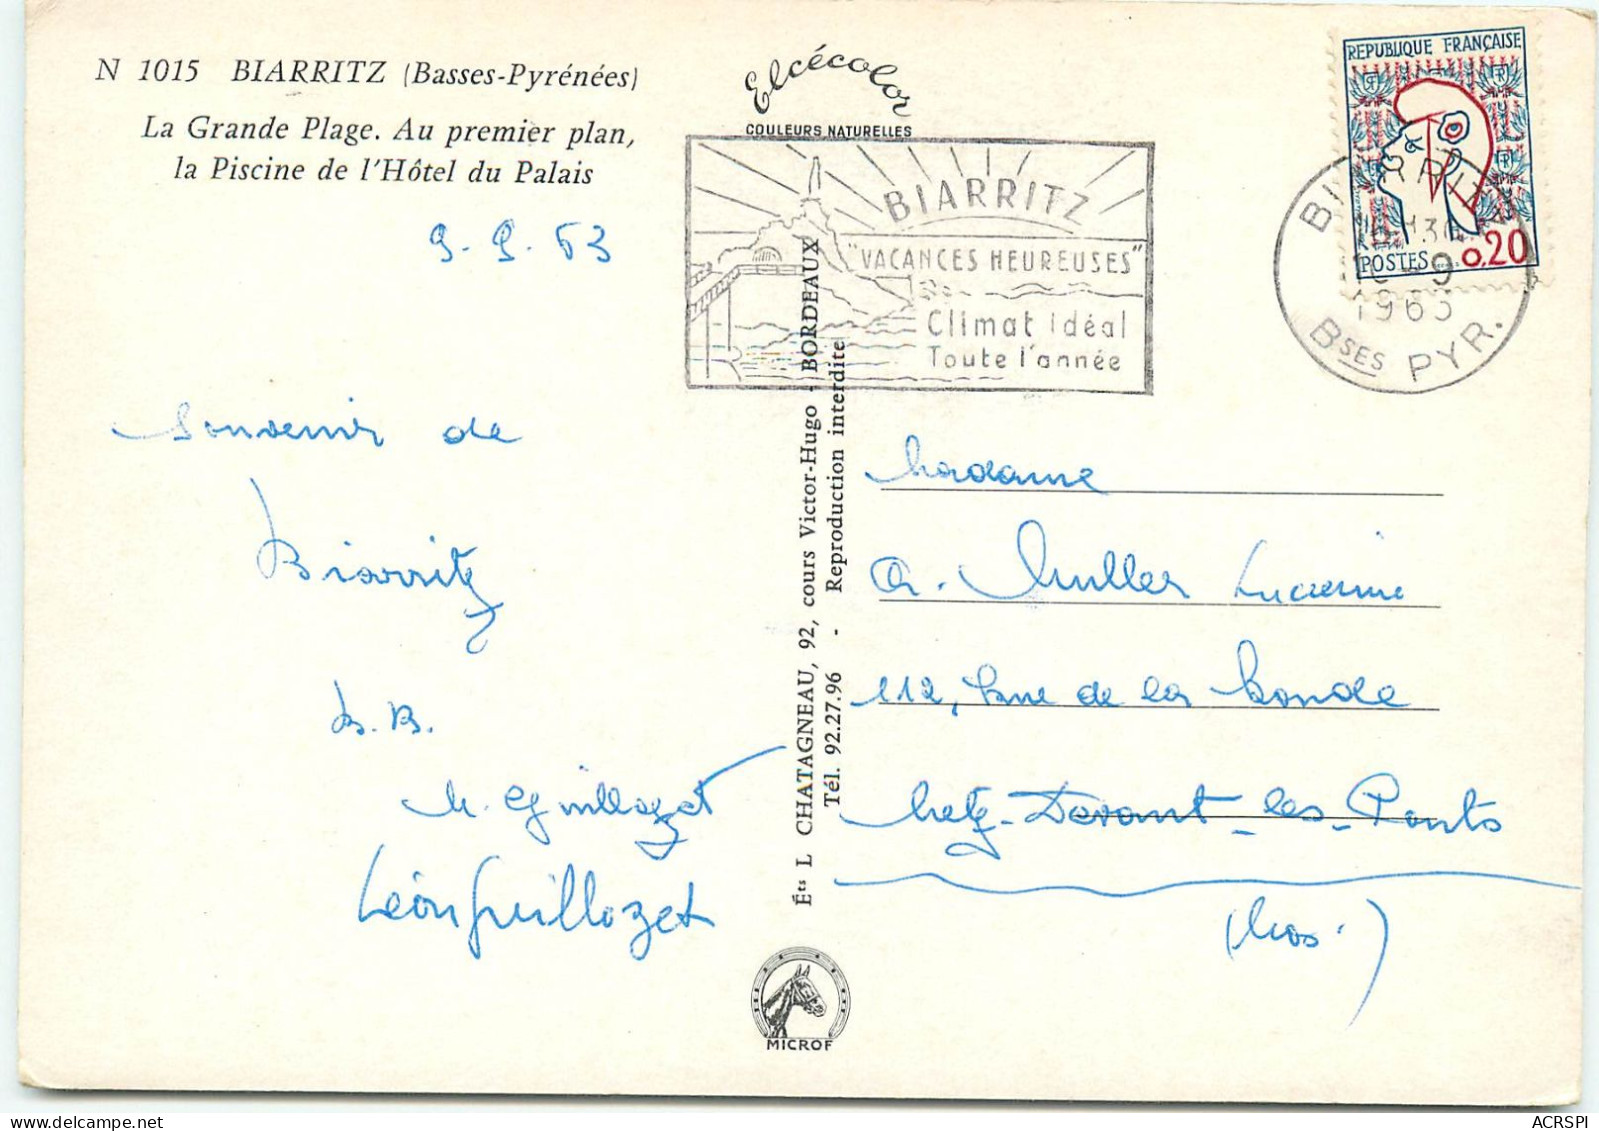 N 1015 BIARRITZ (Basses-Pyrénées)
La Grande Plage. Au premier plan,
la Piscine de l'Hôtel du Palais
9-9-63
Souvenir de
Biarritz
B.B.
M. Guillozet
Léon Guillozet
Elcécolor
COULEURS NATURELLES
BIARRITZ
"VACANCES HEUREUSES"
Climat Idéal
Toute l'année
REPUBLIQUE FRANÇAISE
POSTES 0,20
BIARRITZ
1963
Bses PYR.
Éts L CHATAGNEAU, 92, cours Victor-Hugo - BORDEAUX
Tél. 92.27.96 - Reproduction interdite
Madame
Muller Lucienne
112, Rue de la Ronde
Metz-Devant-les-Ponts
(Mos.)
MICROF
ACRSPI